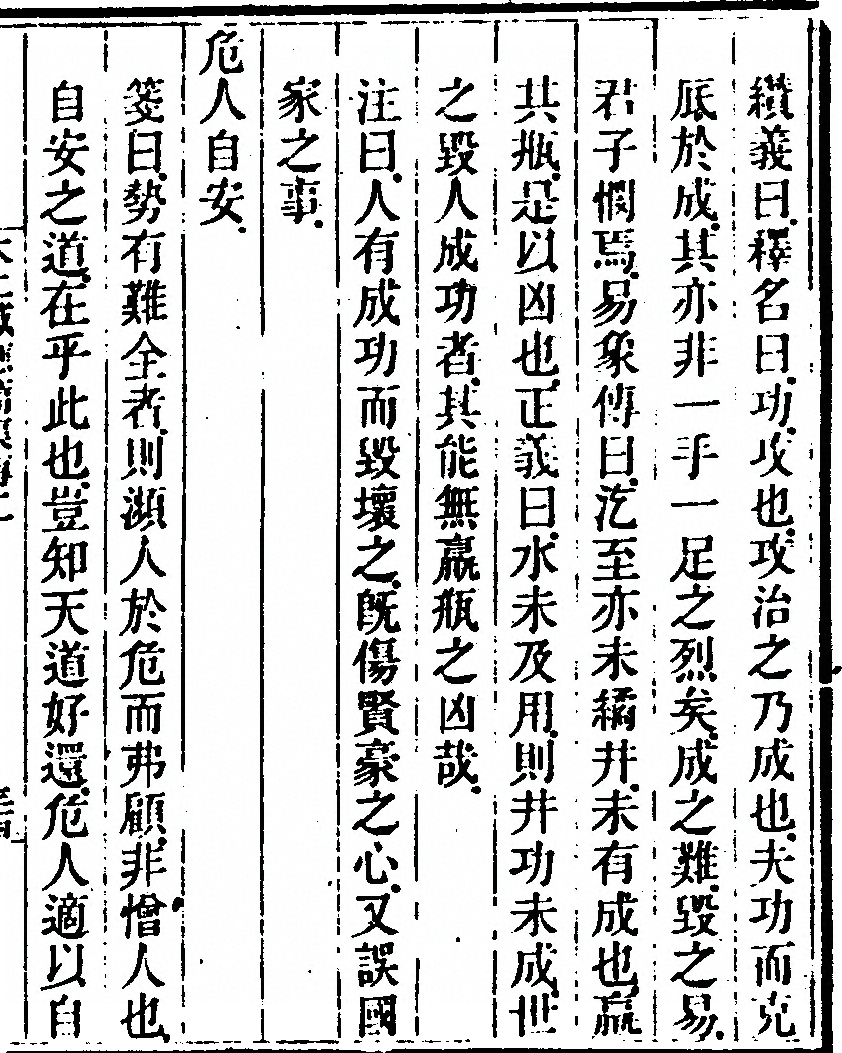 纘義曰.釋名曰.功.攻也.攻治之乃成也.夫功而克
底於成.其亦非一手一足之烈矣.成之難.毀之易.
君子憫焉.易彖傳曰.汔至亦未繘井.未有成也.羸
其瓶.是以凶也.正義曰.水未及用.則井功未成.世
之毀人成功者.其能無羸瓶之凶哉.
注曰.人有成功而毀壞之.旣傷賢豪之心.又誤國
家之事.
危人自安.
箋曰.勢有難全者.則瀕人於危而弗顧.非憎人也.
自安之道.在乎此也.豈知天道好還.危人適以自